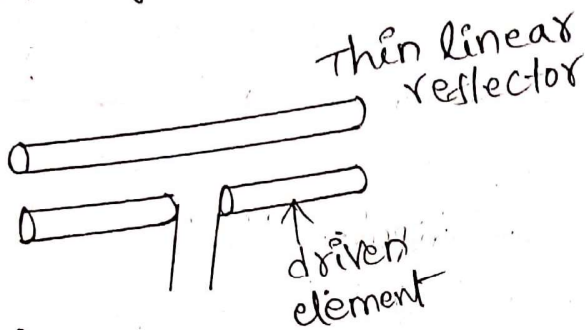 Thin linear
reflector
driven
element